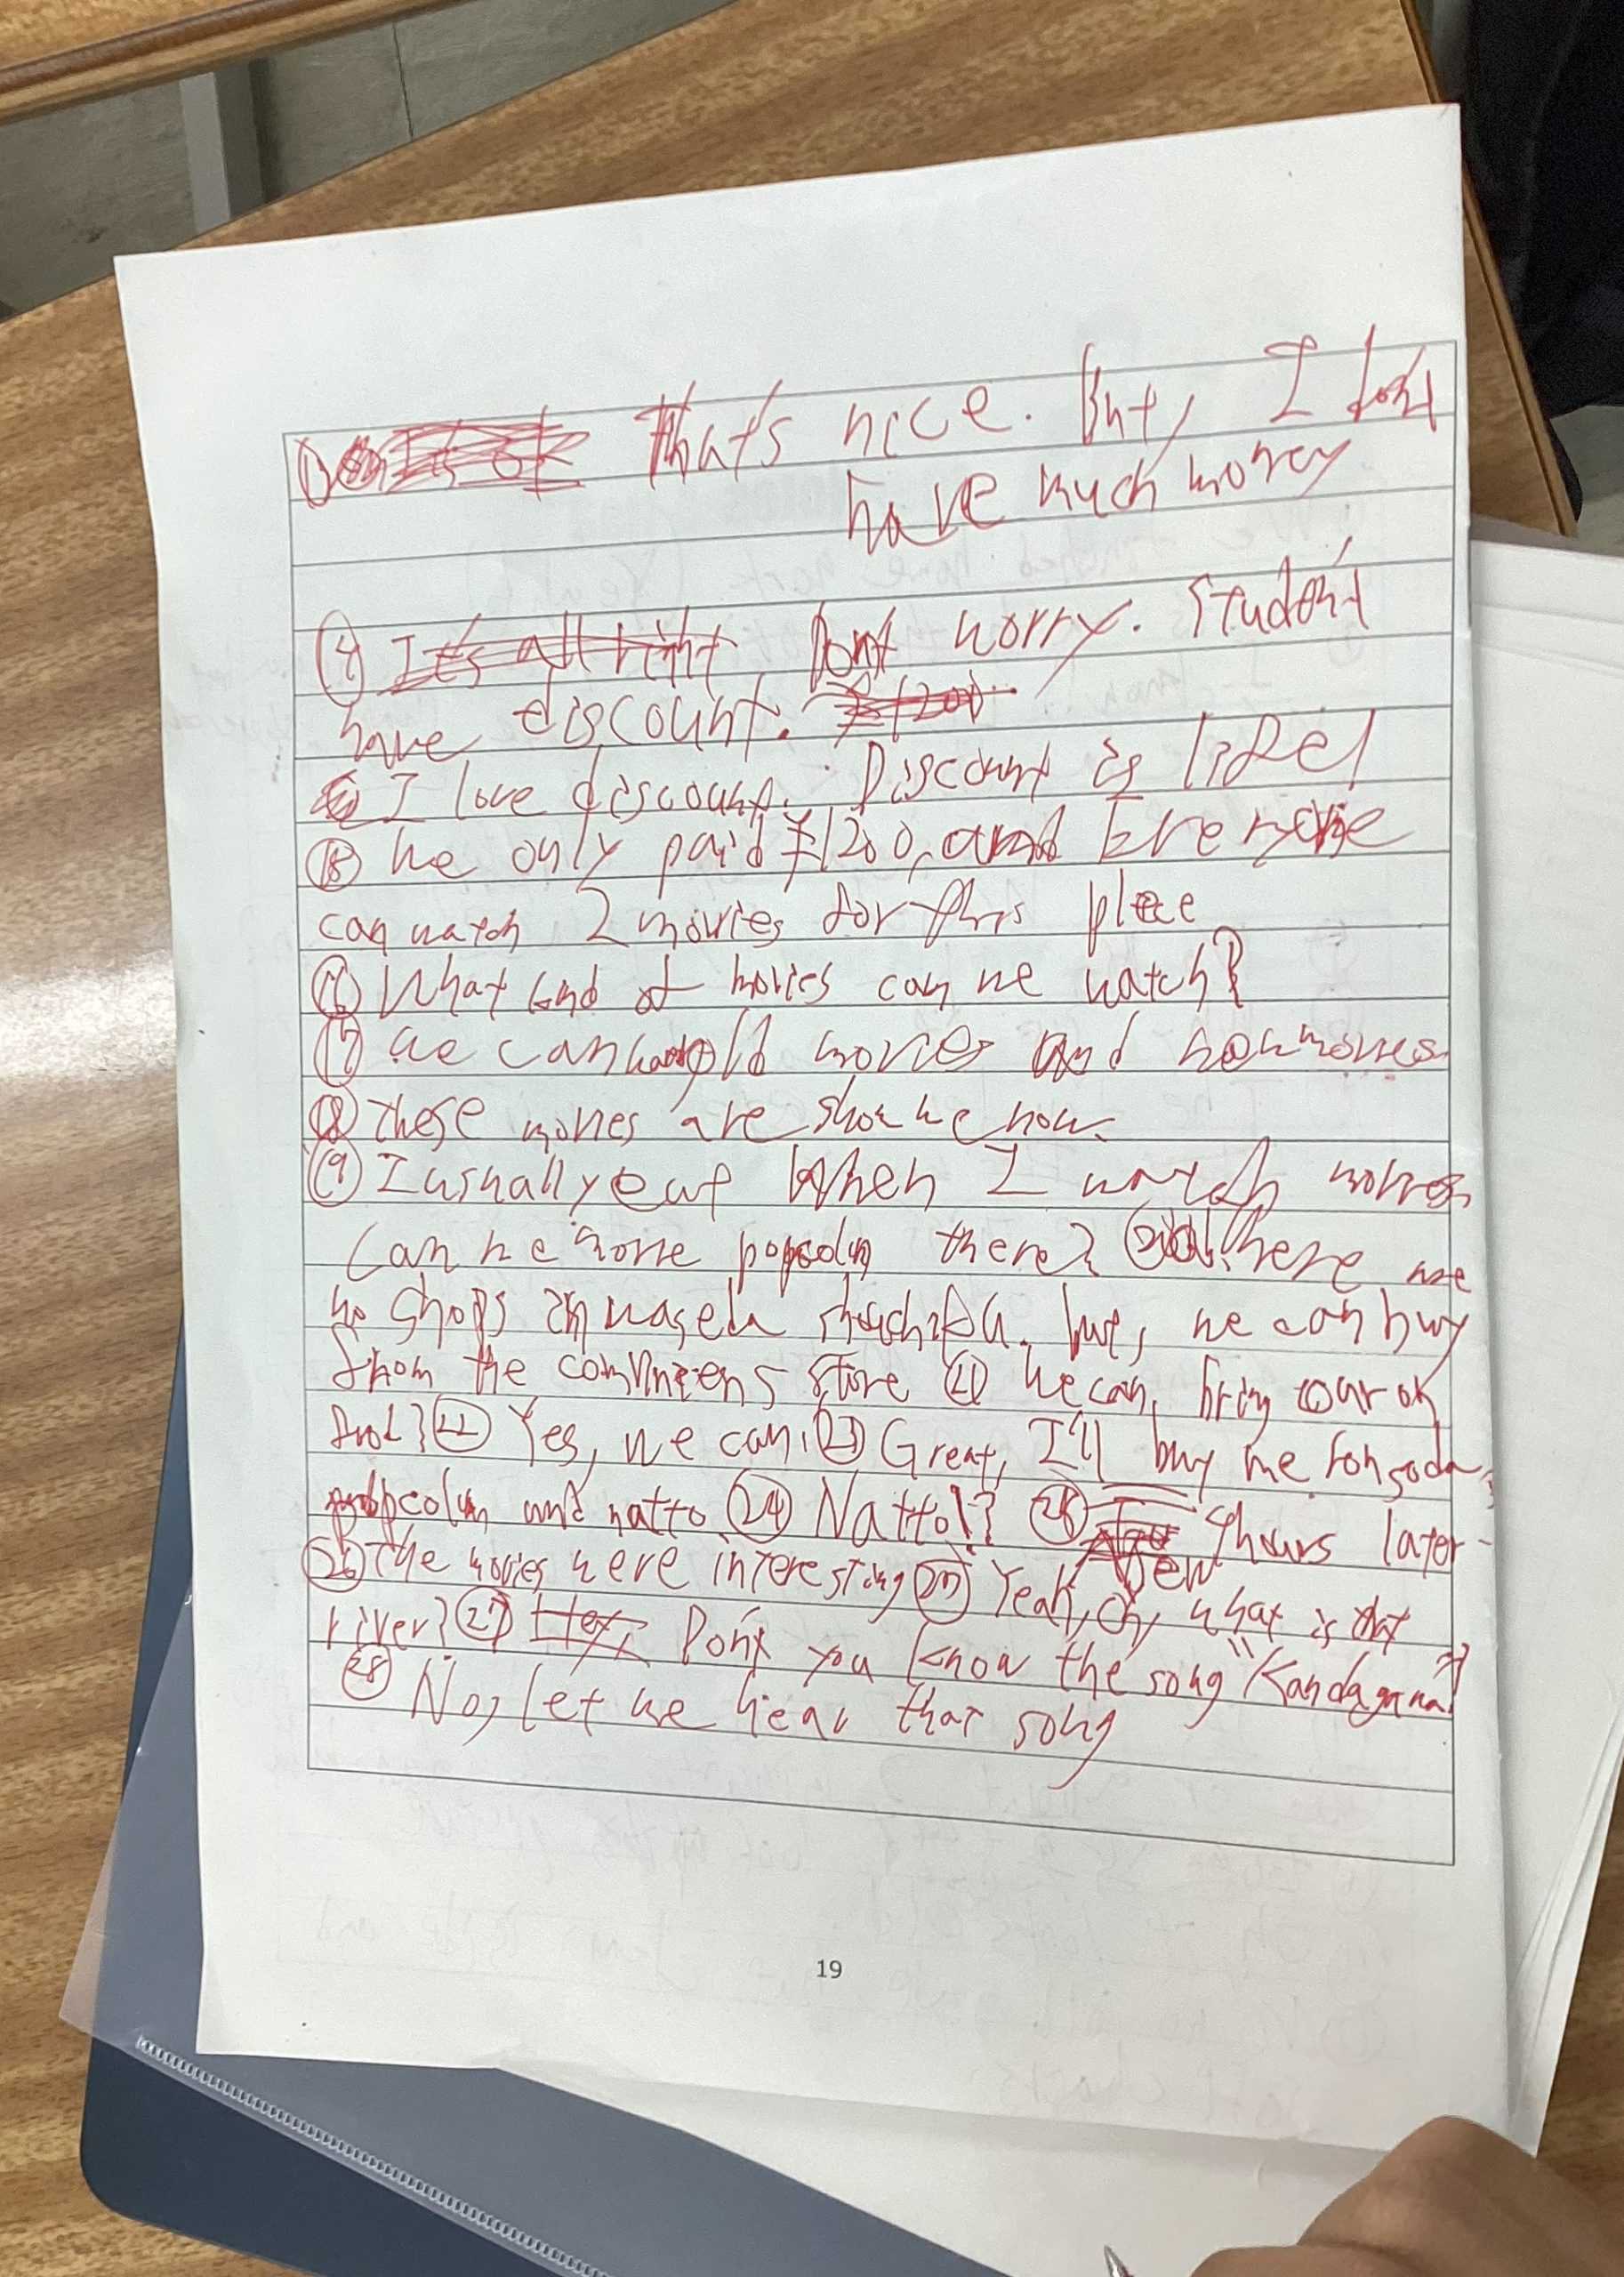 That's nice. But, I don't
have much money
⑭ It's all right Don't worry. Student
have discount. ¥1200
I love discount. Discount is life!
⑮ we only paid ¥1200, and Everyone
can watch 2 movies for this
⑯ What kind of movies can we watch?
⑰ we can old movies and new movies
⑱ these movies are now.
⑲ I usually eat when I watch movies
can we some there? ⑳ there are
no shops in . but, we can buy
from the store ㉑ we can bring our own
food? ㉒ Yes, we can. ㉓ Great, I'll buy soda
and natto ㉔ Natto!? ㉕ hours later
㉖ The movies were interesting ㉗ Yeah, Oh, what is that
river? ㉗ Hey, Don't you know the song "Kandagawa"?
㉘ No, let me hear that song
19